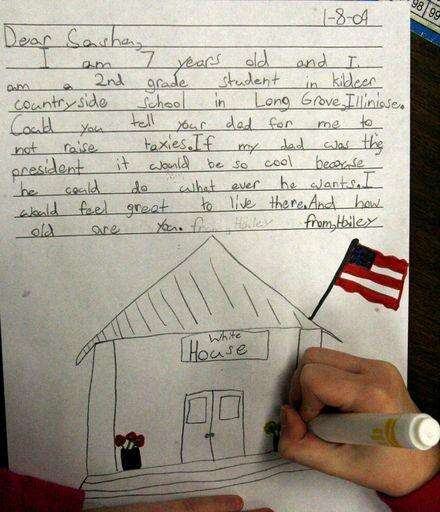 1-8-09
Dear Sasha,
I am 7 years old and I
am a 2nd grade student in kildeer
countryside school in Long Grove,Illiniose.
Could you tell your dad for me to
not raise taxies.If my dad was the
president it would be so cool because
he could do what ever he wants.I
would feel great to live there.And how
old are you. from,Hailey from,Hailey
White
House
98 99